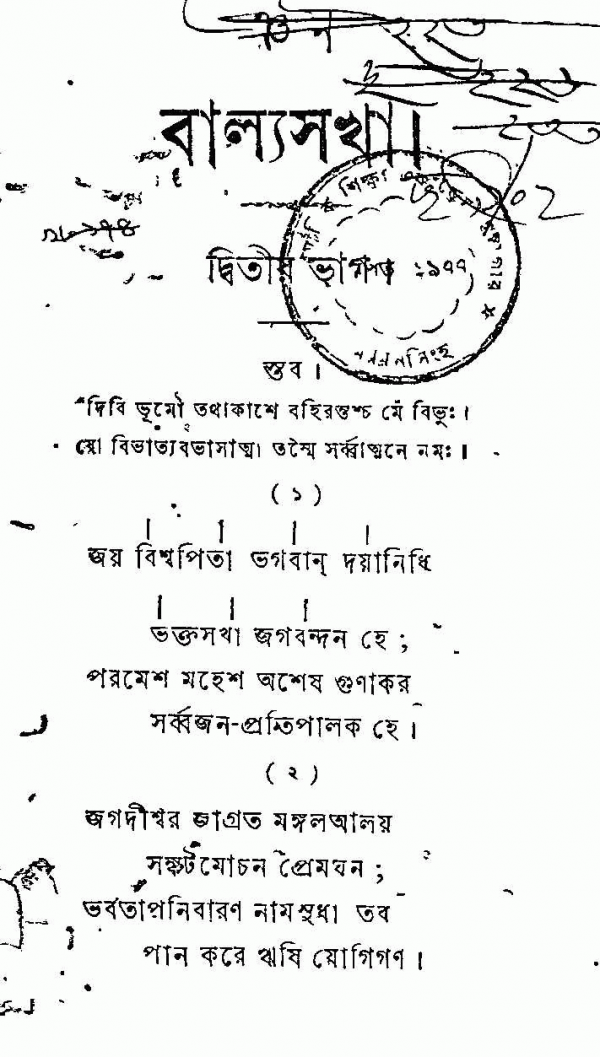 বাল্যসখা।
দ্বিতীয় ভাগ।
স্তব।
দিবি ভূমৌ তথাকাশে বহিরন্তশ্চ মে বিভুঃ।
যো বিভাত্যবভাসাত্মা তস্মৈ সর্ব্বাত্মনে নমঃ।
( ১ )
জয় বিশ্বপিতা ভগবান্ দয়ানিধি
ভক্তসখা জগবন্দন হে ;
পরমেশ মহেশ অশেষ গুণাকর
সর্ব্বজন-প্রতিপালক হে।
( ২ )
জগদীশ্বর জাগ্রত মঙ্গলআলয়
সঙ্কটমোচন প্রেমঘন ;
ভবতাপনিবারণ নামসুধা তব
পান করে ঋষি যোগিগণ।